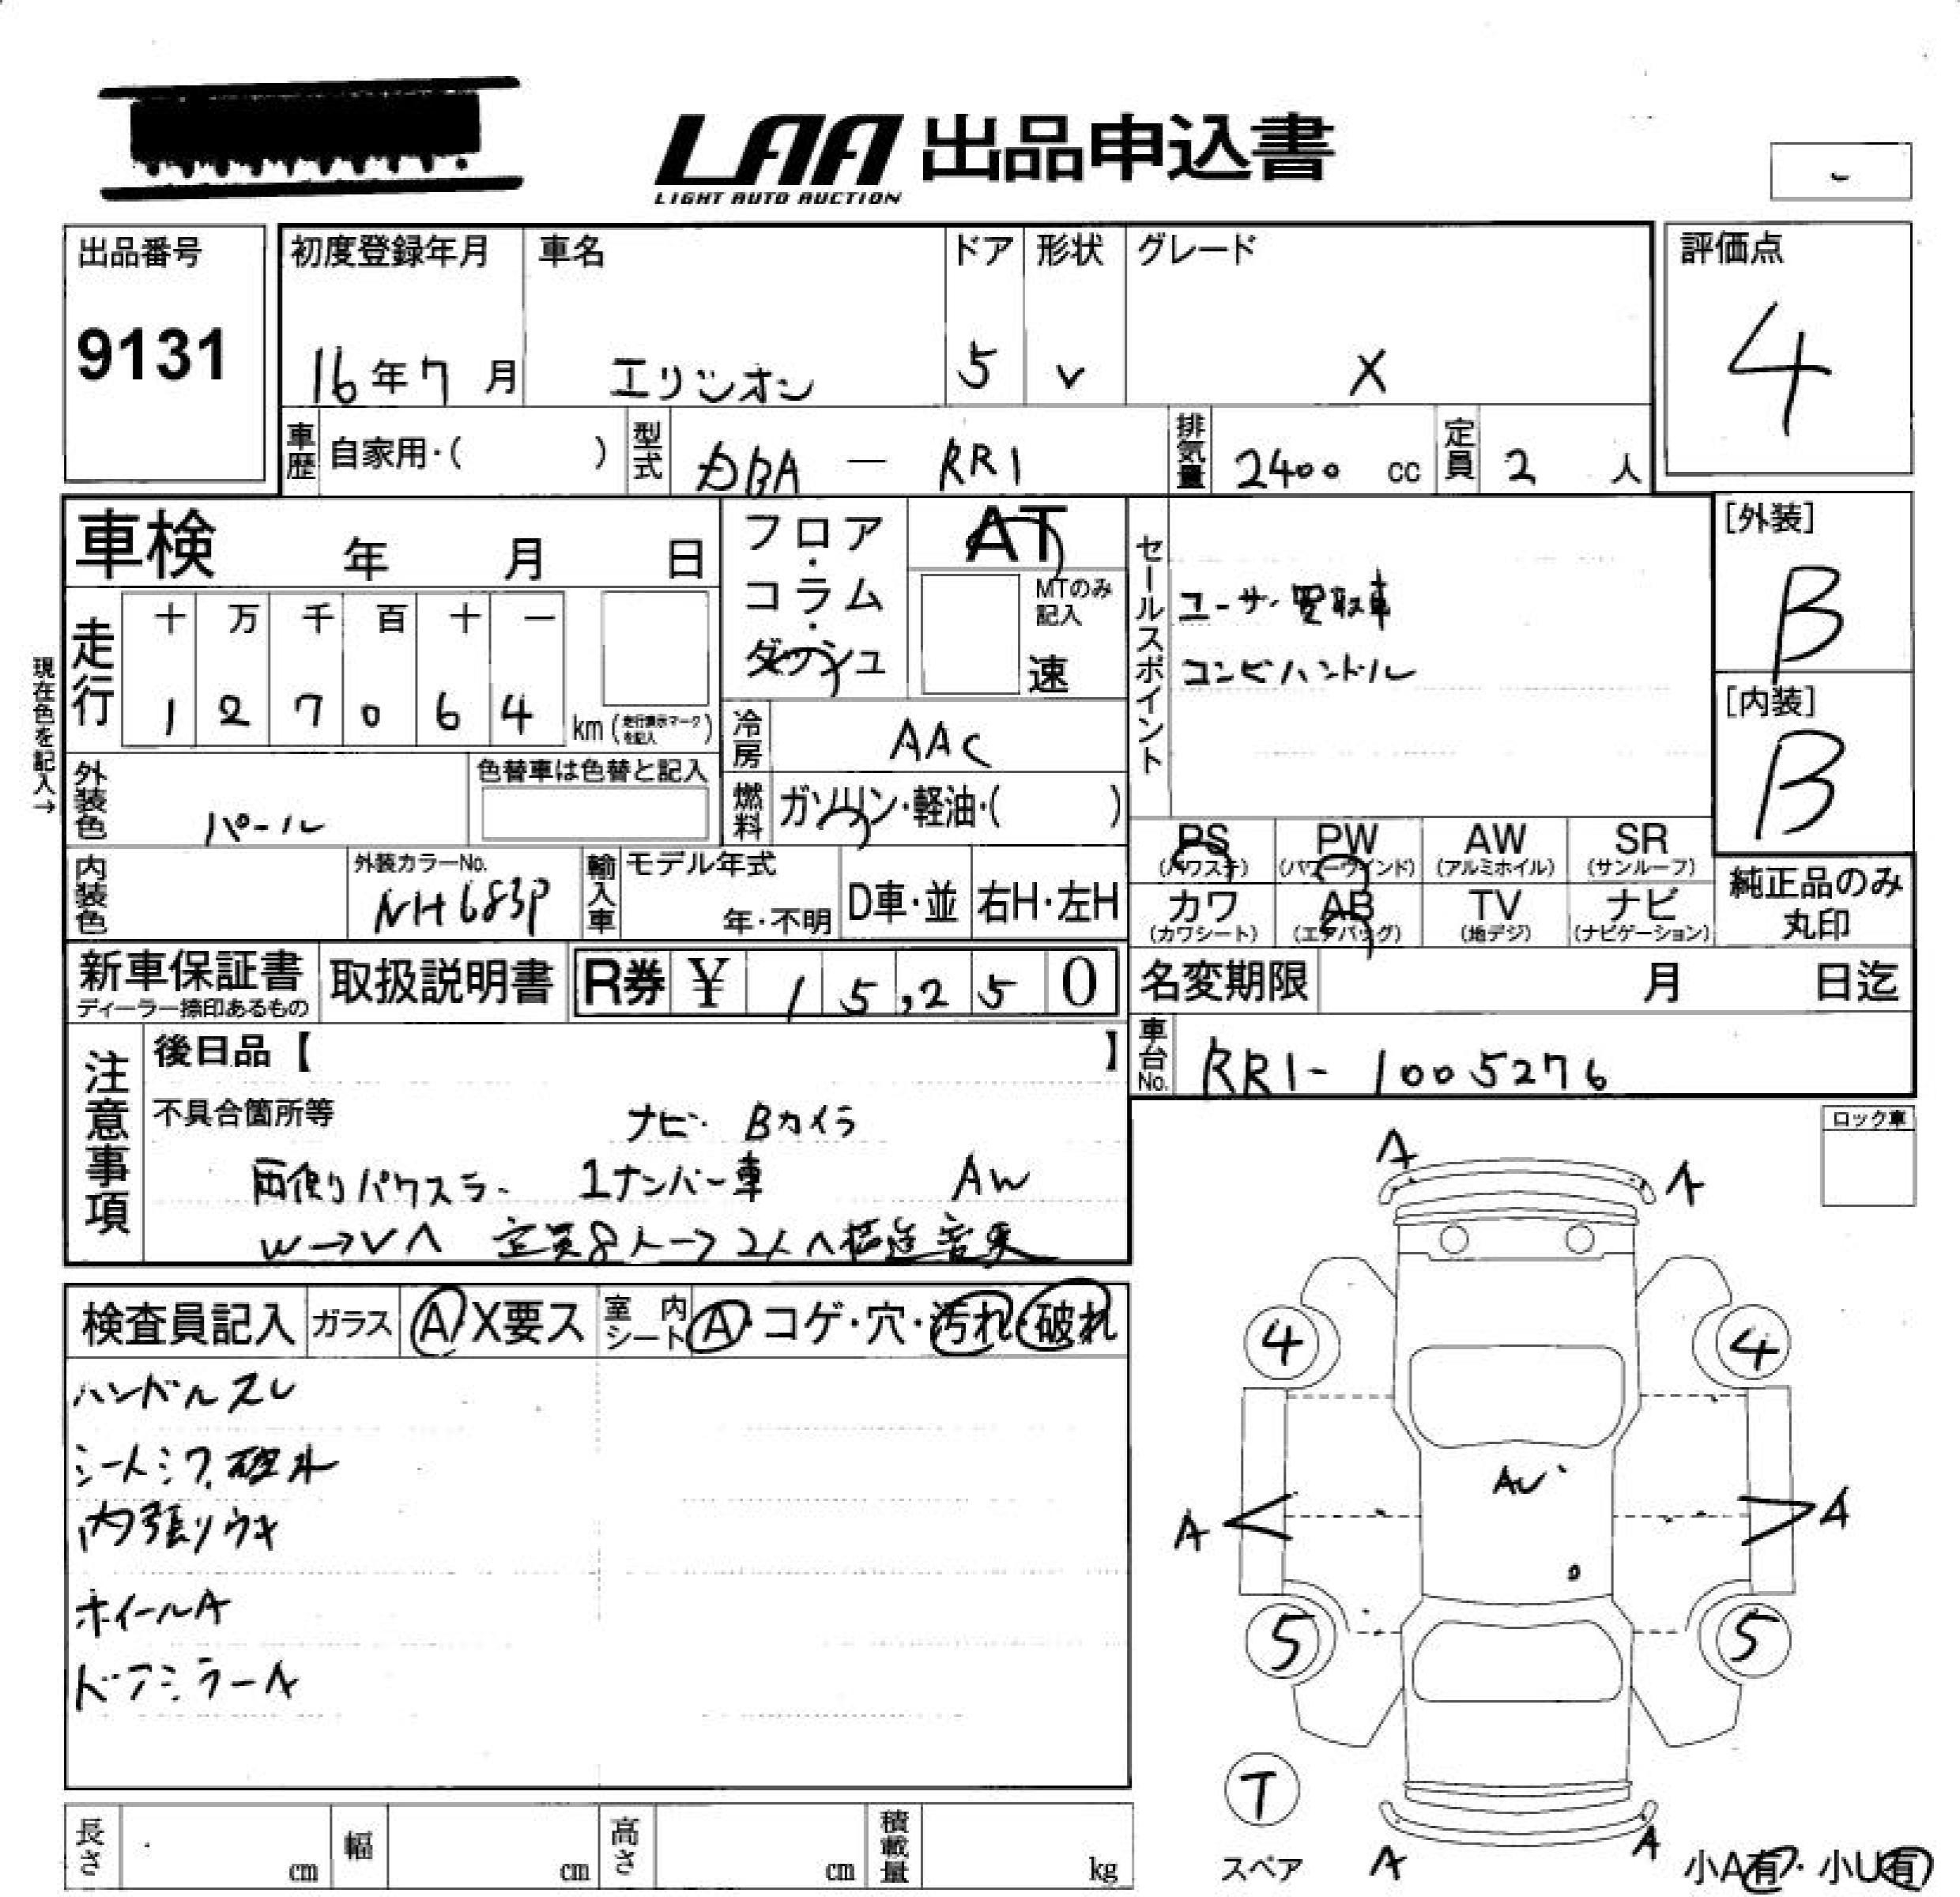 LAA 出品申込書
LIGHT AUTO AUCTION
出品番号
9131
初度登録年月
16年7月
車名
エリシオン
ドア
5
形状
V
グレード
X
評価点
4
車歴 自家用・( )
型式 DBA - RR1
排気量 2400 cc
定員 2 人
車検 年 月 日
フロア・コラム・ダッシュ
AT
MTのみ記入
速
セールスポイント
ユーザー買取車
コンビハンドル
[外装]
B
[内装]
B
現在色を記入→
走行
十 万 千 百 十 一
1 2 7 0 6 4 km (走行表示マークを記入)
冷房 AAC
燃料 ガソリン・軽油・( )
外装色 パール
色替車は色替と記入
内装色
外装カラーNo.
NH683P
輸入車
モデル年式
年・不明
D車・並
右H・左H
PS (パワステ)
PW (パワーウインド)
AW (アルミホイル)
SR (サンルーフ)
カワ (カワシート)
AB (エアバッグ)
TV (地デジ)
ナビ (ナビゲーション)
純正品のみ丸印
新車保証書
ディーラー捺印あるもの
取扱説明書
R券 ¥ 15,250
名変期限 月 日迄
車台No. RR1-1005276
注意事項
後日品【 】
不具合箇所等
ナビ Bカメラ
両側パワスラ 1ナンバー車 AW
W→Vへ 定員8人→2人へ構造変更
ロック車
検査員記入
ガラス A X要ス
室内シート A・コゲ・穴・汚れ・破れ
ハンドルスレ
シートシワ、破れ
内張りウキ
ホイールA
ドアミラーA
A
A
4
4
AU
A
A
5
5
T
スペア
A
A
小A有・小U有
長さ cm
幅 cm
高さ cm
積載量 kg